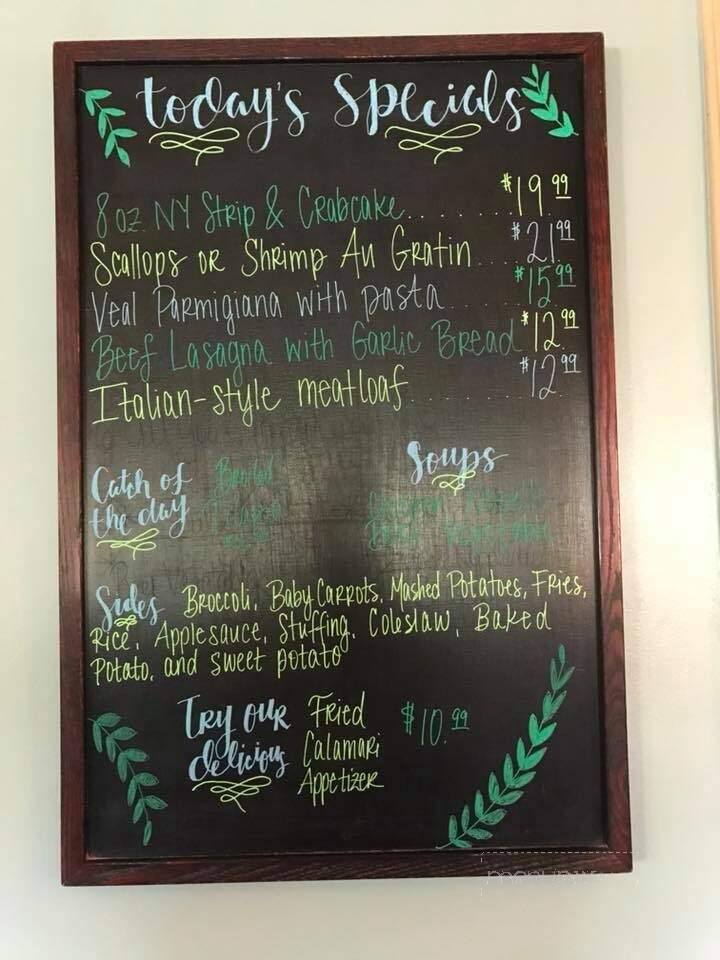 today's Specials
8 oz. NY Strip & Crabcake..... $19.99
Scallops or Shrimp Au Gratin.... $21.99
Veal Parmigiana with pasta..... $15.99
Beef Lasagna with Garlic Bread $12.99
Italian-style meatloaf.......... $12.99
Catch of
the day
Broiled
Soups
Sides Broccoli, Baby Carrots, Mashed Potatoes, Fries,
Rice, Applesauce, Stuffing, Coleslaw, Baked
Potato, and sweet potato
Try our
delicious
Fried
Calamari
Appetizer
$10.99